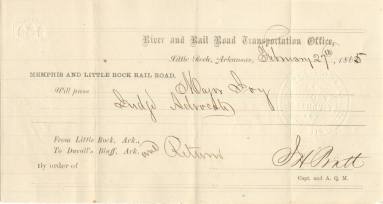 River and Rail Road Transportation Office,
Little Rock, Arkansas, February 27th, 1865
MEMPHIS AND LITTLE ROCK RAIL ROAD,
Will pass Major Foy
Judge Advocate
From Little Rock, Ark.,
To Duvall's Bluff, Ark. and Return
By order of J H Pratt
Capt. and A. Q. M.